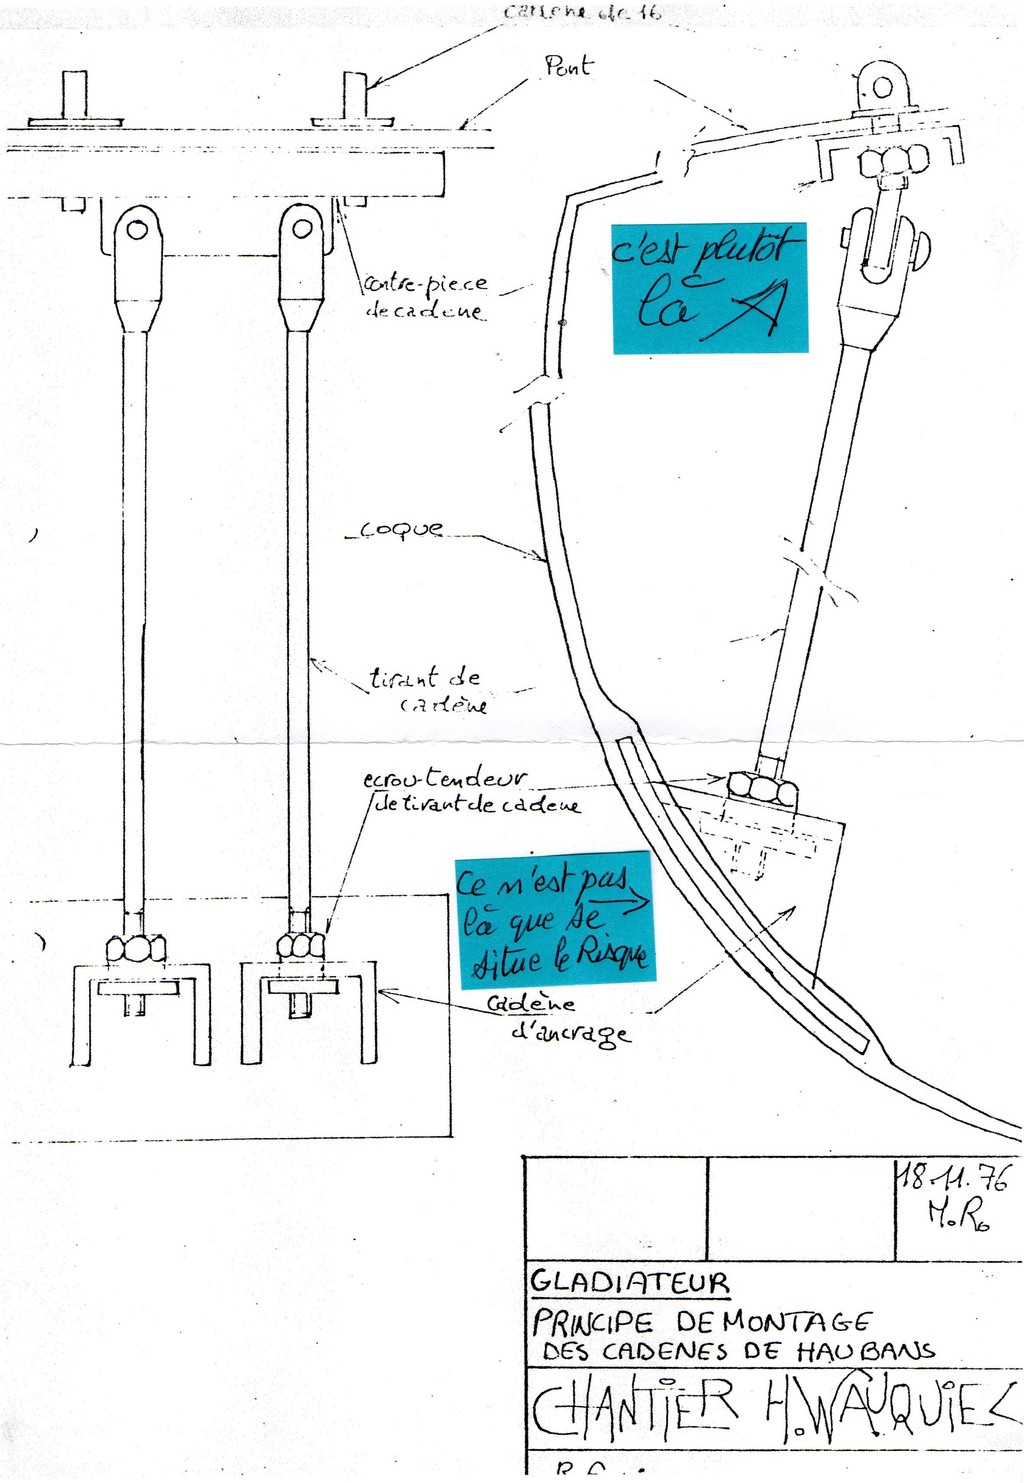 cadene de 16
Pont
c'est plutôt
là
contre-piece
de cadene
coque
tirant de
cadène
ecrou-tendeur
de tirant de cadene
Ce n'est pas
là que se
situe le Risque
cadène
d'ancrage
18.11.76
M.R.
GLADIATEUR
PRINCIPE DE MONTAGE
DES CADENES DE HAUBANS
CHANTIER H.WAUQUIEZ